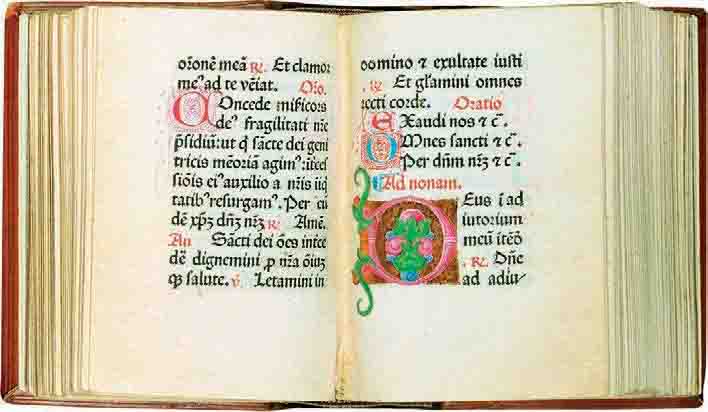 orōnē meā ꝶ. Et clamor
meꝰ ad te vēiat. Orō.
COncede mīſicors
deꝰ fragilitati nr̄e
p̄ſidiū: ut q̄ ſācte dei geni
tricis mēoriā agimꝰ: īterceſ
ſiōis eiꝰ auxilio a nr̄is iīq̇
tatibꝰ reſurgamꝰ. Per eū
dē xp̄ꝫ dn̄ꝫ nr̄ꝫ ꝶ. Amē.
An Sācti dei oēs inte
dē dignemini ꝓ nr̄a ōiuꝫ
qꝫ ſalute. ꝟ. Letamini in
domino ⁊ exultate iuſti
ꝶ. Et gl̄amini omnes
recti corde. Oratio
EXaudi nos ⁊ c̄.
OMnes ſancti ⁊ c̄.
Per dn̄m nr̄ꝫ ⁊ c̄.
Ad nonam.
DEus ī ad
iutorium
meū ītēō
ꝶ. Dn̄e
ad adiu